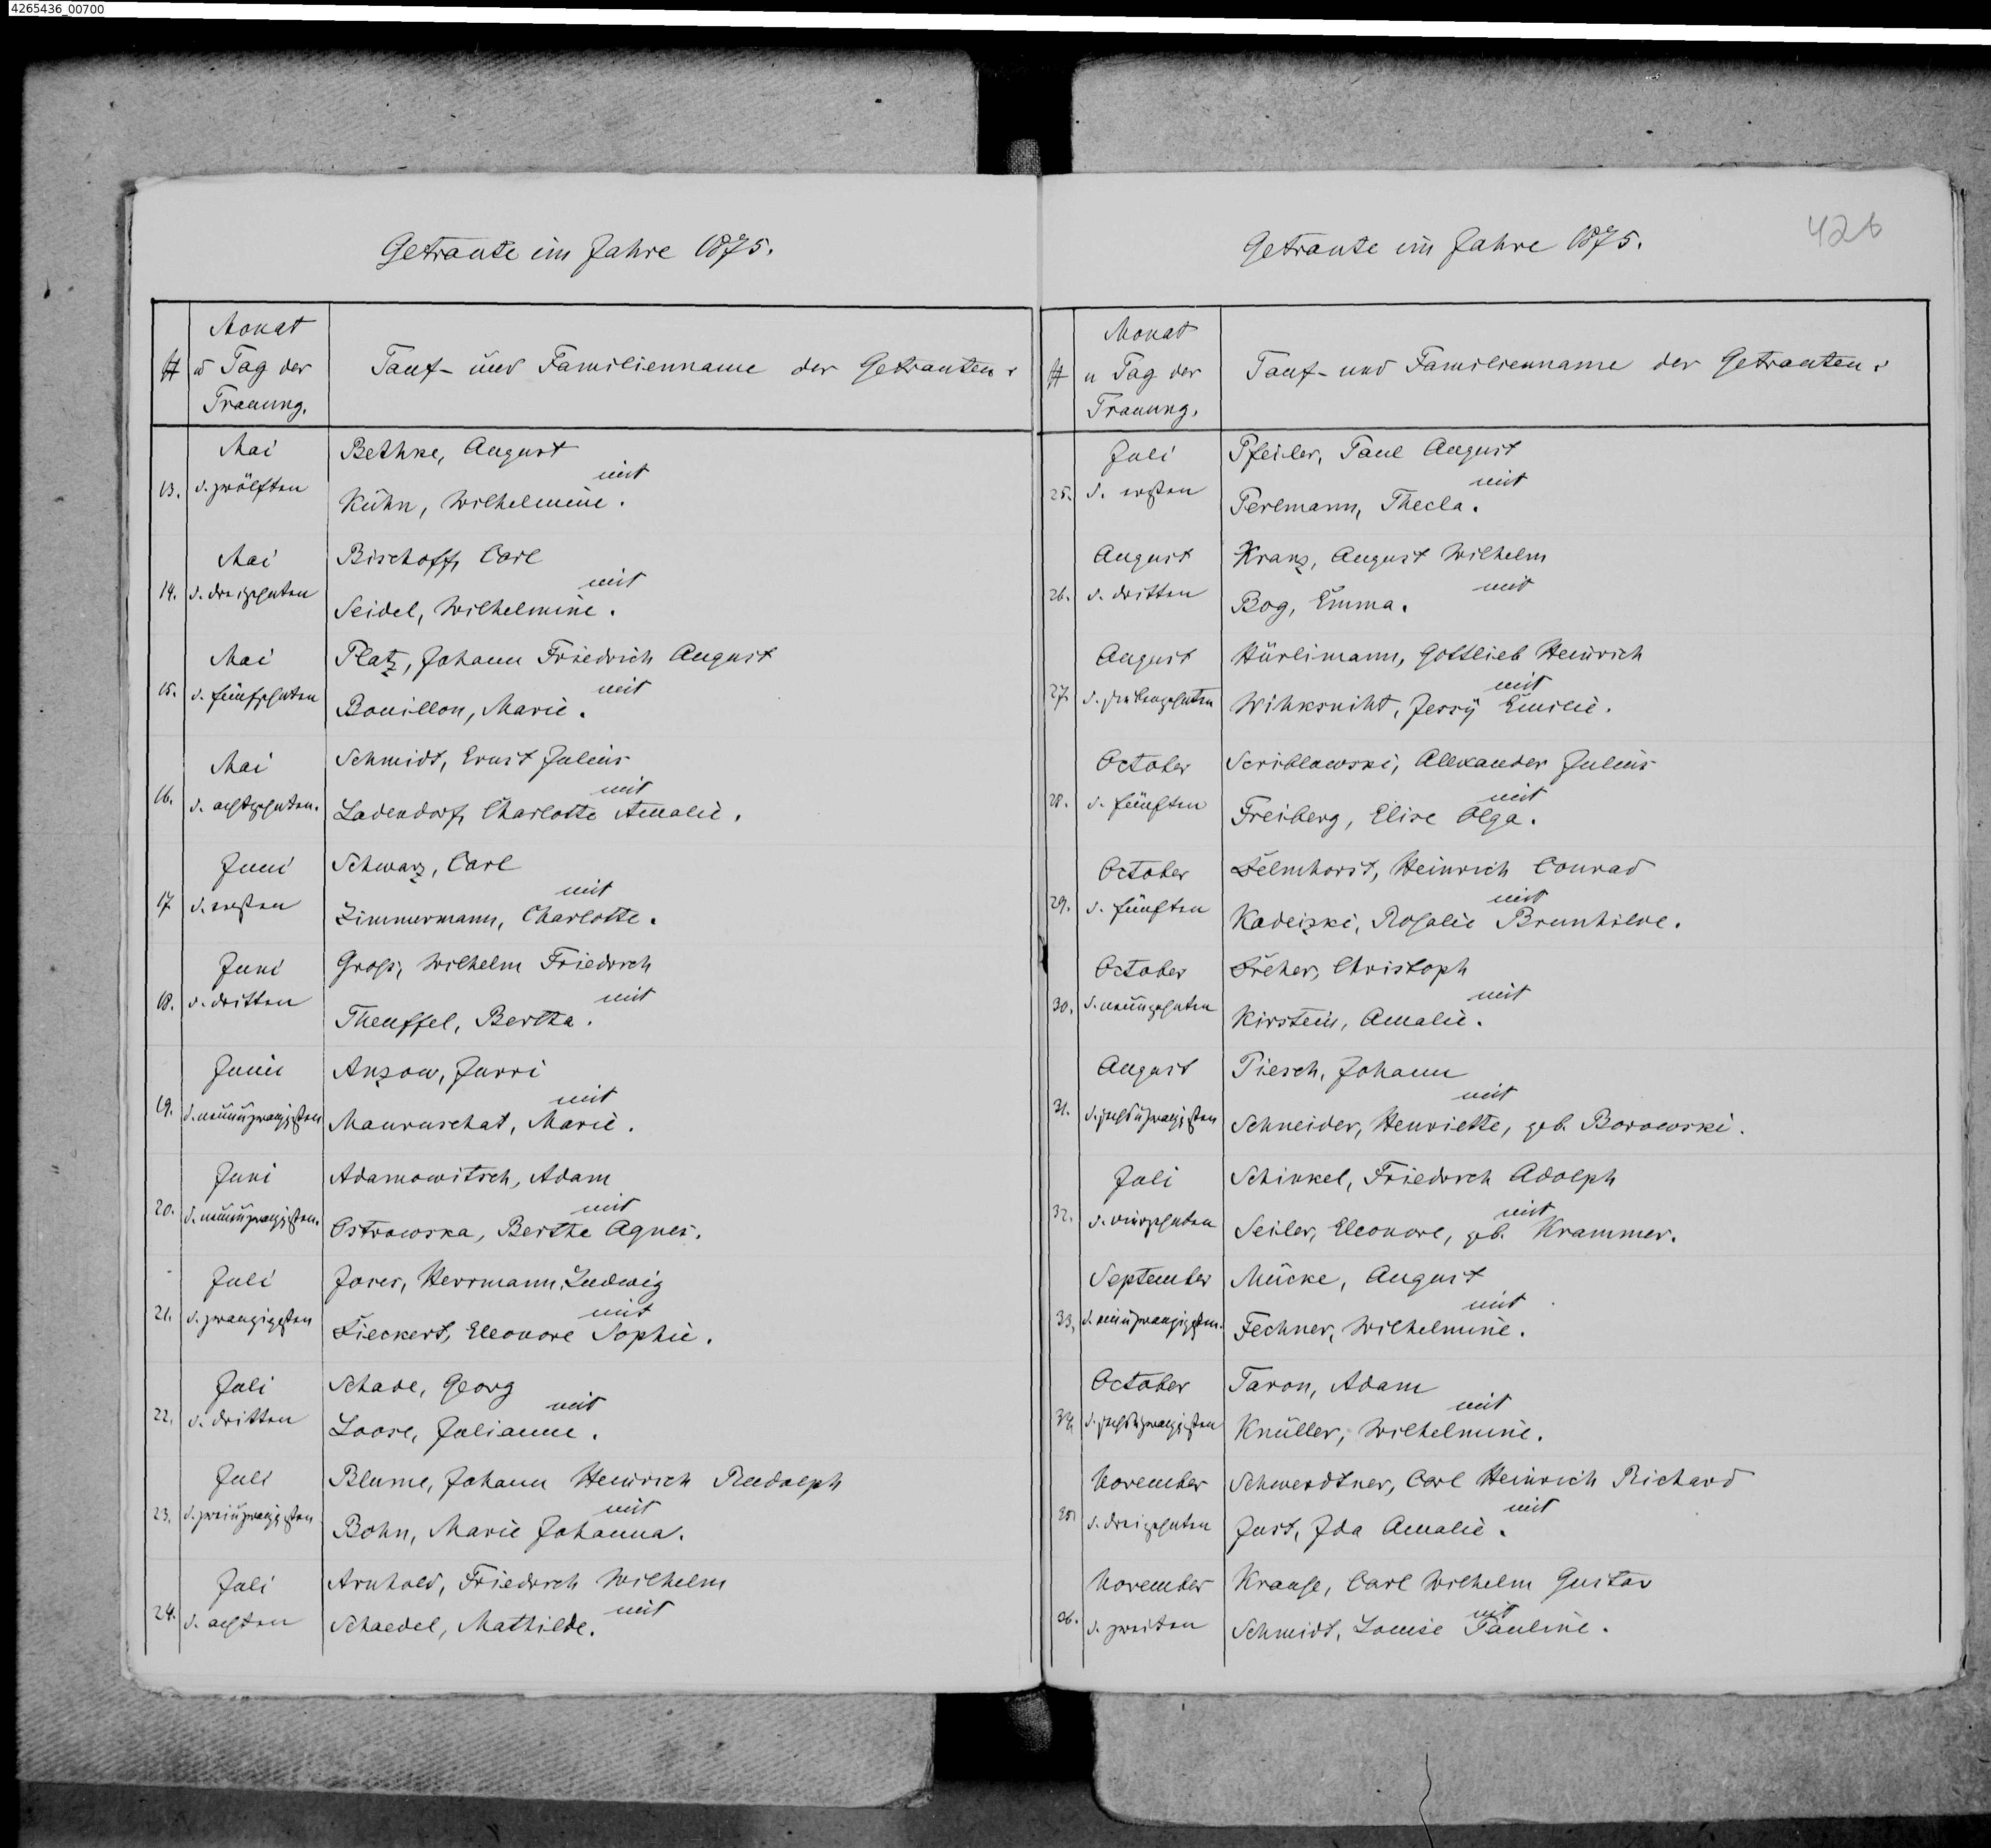 4265436_00700
Getraute im Jahre 1875.
№
Monat
u Tag der
Trauung.
Tauf- und Familienname der Getrauten.
13.
Mai
d. zwölften
Bethke, August
mit
Kühn, Wilhelmine.
14.
Mai
d. dreizehnten
Bischoff, Carl
mit
Seidel, Wilhelmine.
15.
Mai
d. fünfzehnten
Platz, Johann Friedrich August
mit
Bouillon, Marie.
16.
Mai
d. achtzehnten.
Schmidt, Ernst Julius
mit
Ladendorf, Charlotte Amalie.
17
Juni
d. ersten
Schwarz, Carl
mit
Zimmermann, Charlotte.
18.
Juni
d. dritten
Groß, Wilhelm Friedrich
mit
Theuffel, Bertha.
19.
Juni
d. neunundzwanzigsten
Anzow, Jurri
mit
Mauruschat, Marie.
20.
Juni
d. neunundzwanzigsten.
Adamowitsch, Adam
mit
Ostrowska, Bertha Agnes.
21.
Juli
d. zwanzigsten
Jores, Herrmann Ludwig
mit
Lieckert, Eleonore Sophie.
22.
Juli
d. dritten
Schade, Georg
mit
Loose, Julianne.
23.
Juli
d. zweiundzwanzigsten
Blume, Johann Heinrich Rudolph
mit
Bohn, Marie Johanna.
24.
Juli
d. achten
Arnhold, Friedrich Wilhelm
mit
Schaedel, Mathilde.
426
Getraute im Jahre 1875.
№
Monat
u Tag der
Trauung.
Tauf- und Familienname der Getrauten.
25.
Juli
d. ersten
Pfeiler, Paul August
mit
Perlmann, Thecla.
26.
August
d. dritten
Kranz, August Wilhelm
mit
Bog, Emma.
27
August
d. siebenzehnten
Hürlimann, Gottlieb Heinrich
mit
Wihksniht, Jessÿ Emilie.
28.
October
d. fünften
Scriblowski, Alexander Julius
mit
Freiberg, Elise Olga.
29.
October
d. fünften
Delmhorst, Heinrich Conrad
mit
Kadeizki, Rosalie Brunhilde.
30.
October
d. neunzehnten
Dreher, Christoph
mit
Kirstein, Amalie.
31.
August
d. sechsundzwanzigsten
Piesch, Johann
mit
Schneider, Henriette, geb. Borowski.
32.
Juli
d. vierzehnten
Schinkel, Friedrich Adolph
mit
Seiler, Eleonore, geb. Krammer.
33.
September
Mücke, August
mit
Fechner, Wilhelmine.
34
October
d. sechsundzwanzigsten
Taron, Adam
mit
Knüller, Wilhelmine.
35.
November
d. dreizehnten
Schwerdtner, Carl Heinrich Richard
mit
Just, Ida Amalie.
36.
November
d. zweiten
Krause, Carl Wilhelm Gustav
mit
Schmidt, Louise Pauline.